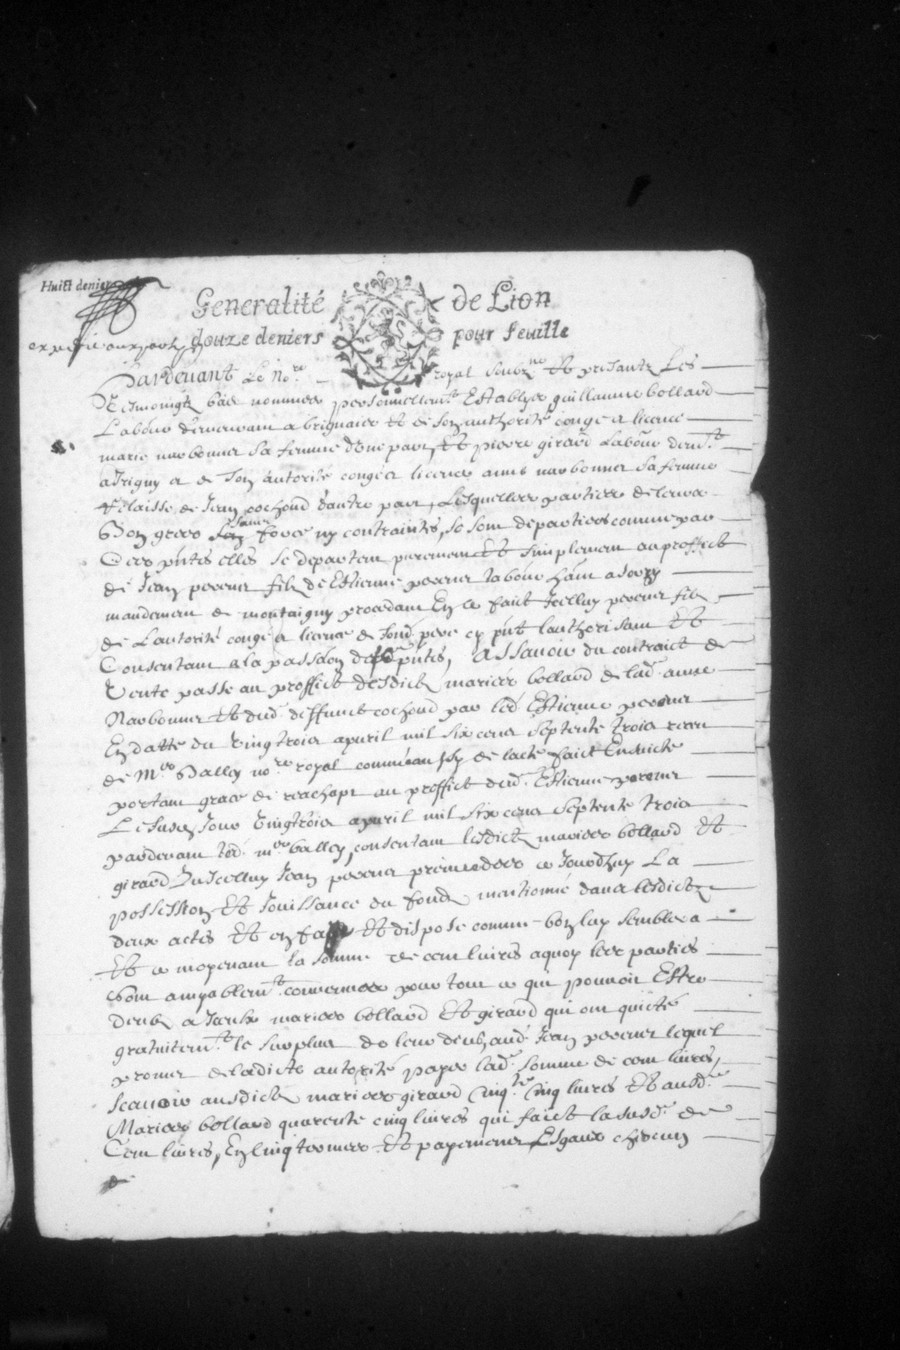 Huict deniers
Generalité de Lion
douze deniers pour feuille
Pardevant le no.re royal soubz.né Et presantz Les
Tesmoingtz bas nommes personnellem.t Establys guillaume bollard
Labour demeurant a brignais Et de son authorité congé a licence
marie narbonne sa femme d'une part, Et pierre girard Labour dem.t
a Irigny a de son autorité congé a licence anne narbonne sa femme
de Jean cochoud d'autre part, Lesquelles parties de leurs
bon gres sans force ny contrainte, se sont departies comme par
Ces pntes elles se departent purement Et simplement au proffict
de Jean perenet filz de Estienne perenet labour h'ant a
mandement de montaigny procedant En ce faict Icelluy perenet filz
de L'autorité congé a licence de sond. pere cy pnt lauthorisant Et
Consentant a la passation des pntes, Assavoir du contraict de
Vente passé au proffict desdictz maries bollard de lad. anne
Narbonne Et dud. deffunct cochoud par led. Estienne perenet
En datte du vingtrois apvril mil six cens septente trois receu
de M.re balley no.re royal de lacte faict Ensuicte
portant grace de reachapt au proffict dud. Estienne perenet
Le susd. Jour vingtrois apvril mil six cens septente trois
pardevant led. m.re balley, consentant lesdictz maries bollard Et
girard Jcelluy Jean perenet ce Jourdhuy La
possession Et Jouissance du fondz mentionné dans lesdictz
deux actes Et en face Et dispose comme bon luy semblera
Et ce moyenant la somme de cent livres a quoy les parties
sont amyablem.t convenues pour tout ce qui pouvoit Estre
deubz a Jceux maries bollard Et girard qui ont quicté
gratuitem.t le surplus de leur deub, aud. Jean perenet lequel
promet de ladicte autorité payer lad. somme de cent livres,
scavoir ausdictz maries girard cinq.te cinq livres Et ausd.
Maries bollard quarente cinq livres qui faict la susd. de
Cent livres, En cinq termes Et payements Esgaux chascun